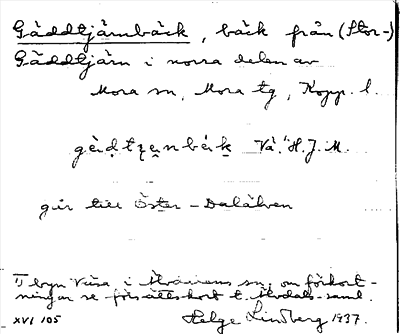 Gäddtjärnbäck, bäck från (Stor-)
Gäddtjärn i norra delen av
Mora sn, Mora tg, Kopp. l.
Vå.1) H. J. M.
går till Öster-Dalälven
1) byn Våsa i Älvdalens sn; om förkort-
ningar se försättskort t. Älvdals-saml.
XVI 105 Helge Lindberg 1937.